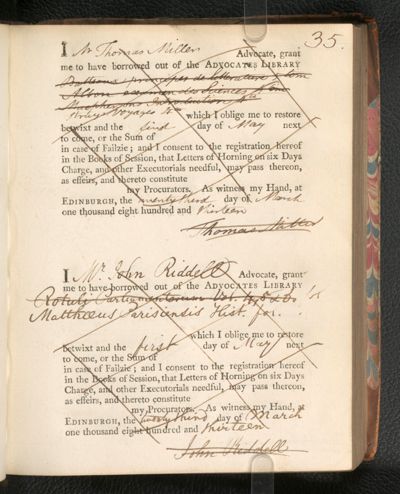 35.
I Mr Thomas Miller Advocate, grant
me to have borrowed out of the ADVOCATES LIBRARY
principes de litterature
des Sciences
Introduction 4to
Voyages 4to which I oblige me to restore
betwixt and the first day of May next
to come, or the Sum of
in case of Failzie; and I consent to the registration hereof
in the Books of Session, that Letters of Horning on six Days
Charge, and other Executorials needful, may pass thereon,
as effeirs, and thereto constitute
my Procurators. As witness my Hand, at
EDINBURGH, the twenty third day of March
one thousand eight hundred and thirteen
Thomas Miller
I Mr. John Riddell Advocate, grant
me to have borrowed out of the ADVOCATES LIBRARY
Rotuli Parliamentorum Vol. 4, 5 &
Matthæus Parisiensis Hist. for.
which I oblige me to restore
betwixt and the first day of May next
to come, or the Sum of
in case of Failzie; and I consent to the registration hereof
in the Books of Session, that Letters of Horning on six Days
Charge, and other Executorials needful, may pass thereon,
as effeirs, and thereto constitute
my Procurators. As witness my Hand, at
EDINBURGH, the twenty third day of March
one thousand eight hundred and thirteen
John Riddell